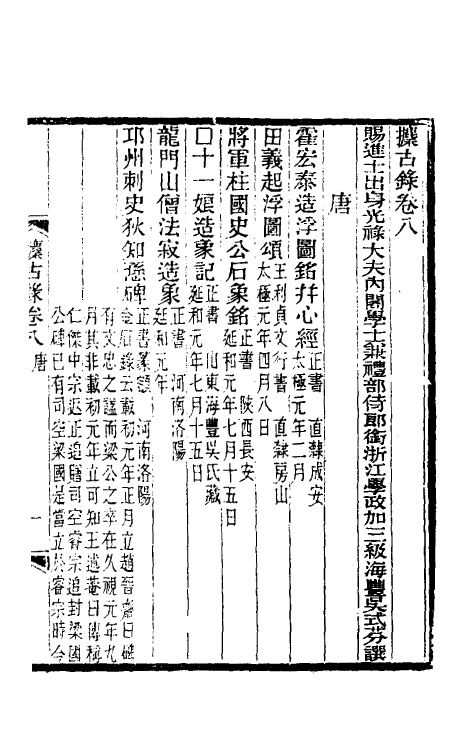 攈古錄卷八
賜進士出身光祿大夫內閣學士兼禮部侍郎銜浙江學政加三級海豐吳式芬譔
唐
霍宏泰造浮圖銘幷心經正書　直隸成安
太極元年二月
田義起浮圖頌王利貞文行書　直隸房山
太極元年四月八日
將軍柱國史公石象銘正書　陝西長安
延和元年七月十五日
口十一娘造象記正書　山東海豐吳氏藏
延和元年七月十五日
龍門山僧法寂造象正書　河南洛陽
延和元年
邛州刺史狄知愻碑正書篆額　河南洛陽
金石錄云載初元年正月立趙晉齋曰碑
有文忠之諡而梁公之卒在久視元年九
月其非載初元年立可知王述菴曰傳稱
仁傑中宗返正追贈司空睿宗追封梁國
公碑已有司空梁國是當立於睿宗時今
攈古錄卷八　唐
一